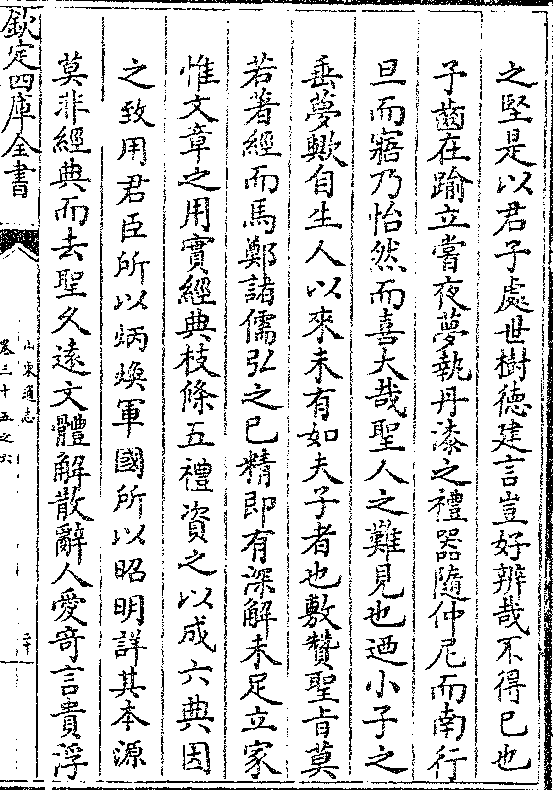 之堅是以君子處世樹德建言豈好辨哉不得已也
予齒在踰立嘗夜夢執丹漆之禮器隨仲尼而南行
旦而寤乃怡然而喜大哉聖人之難見也迺小子之
垂夢歟自生人以來未有如夫子者也敷贊聖旨莫
若著經而馬鄭諸儒弘之已精即有深解未足立家
惟文章之用實經典枝條五禮資之以成六典因
之致用君臣所以炳煥軍國所以昭明詳其本源
莫非經典而去聖久遠文體解散辭人愛竒言貴浮
欽定四庫全書
山東通志
卷三十五之六
二十